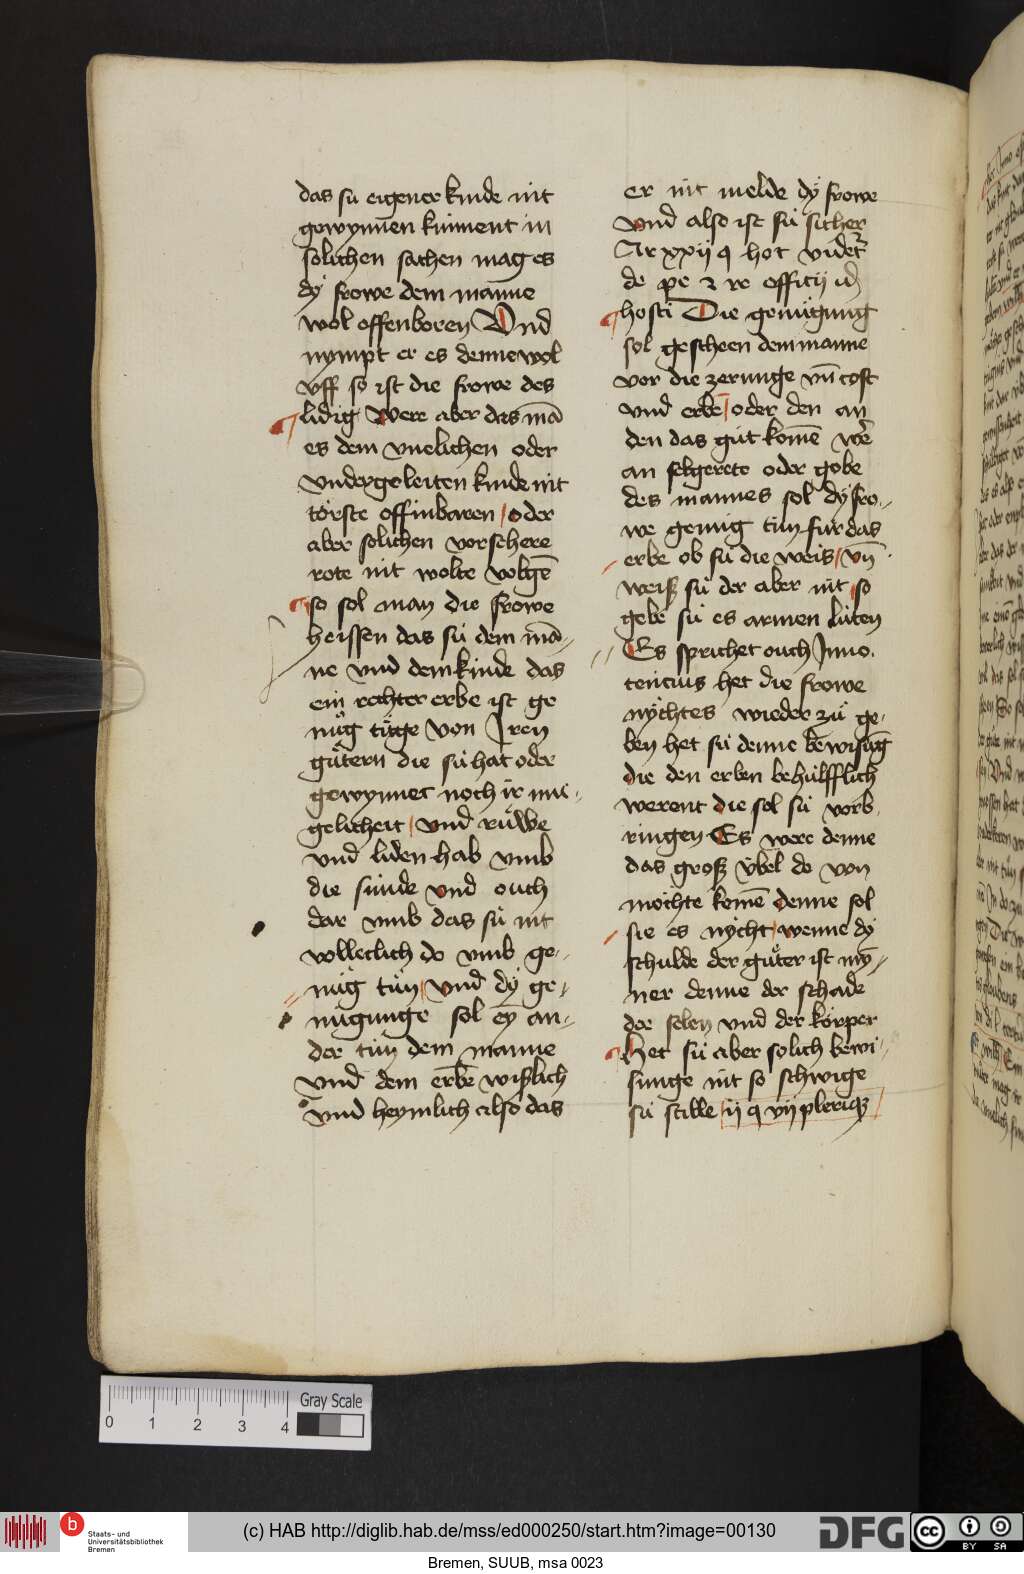 das sü eigener kinde nit
gewynnen kunnent in
solichen sachen mag es
dÿ frowe dem manne
wol offenboren Vnd
nympt er es denne wol
vff so ist die frowe des
lidig Were aber das mā
es dem vnelichen oder
vndergeleiten kinde nit
törste offinbaren oder
aber solichen vorsehere
rote nit wolte volgē
so sol man die frowe
heissen das sü dem mā-
ne vnd dem kinde das
ein rechter erbe ist ge
nüg tüge von Iren
gütern die sü hat oder
gewynnet noch ir mü-
gelicheit vnd rüwe
vnd liden hab vmb
die sünde vnd ouch
dar vmb das sü nit
volleclich do vmb ge-
nüg tün vnd dÿ ge-
nügunge sol eÿ an-
der tün dem manne
vnd dem erbē wißlich
vnd heymlich also das
er nit melde dÿ frowe
vnd also ist sü sicher
Ar xxij q hot videtr
de pe z re officij
hosti Die genügung
sol gescheen dem manne
vor die zerunge vn̄ cost
vnd erbe oder den an
den das güt komē wer
an selgerete oder gobe
des mannes sol dÿ fro-
we genüg tün für das
erbe ob sü die weis vn̄
weiß sü der aber nit so
gebe sü es armen lüten
Es sprichet ouch Inno.
tencius het die frowe
nÿchtes wieder zü ge-
ben het sü denne bewisūg
die den erben behülfflich
werent die sol sü vorb
ringen Es were denne
das groß vbel do von
möchte komē denne sol
sie es nÿcht wenne dÿ
schulde der güter ist mÿ-
ner denne der schade
der selen vnd der körper
Het sü aber solich bewi-
sunge nit so schwige
sü stille ij q vij plerique
0 1 2 3 4
Gray Scale
b Staats- und
Universitätsbibliothek
Bremen
(c) HAB http://diglib.hab.de/mss/ed000250/start.htm?image=00130
DFG
cc BY SA
Bremen, SUUB, msa 0023